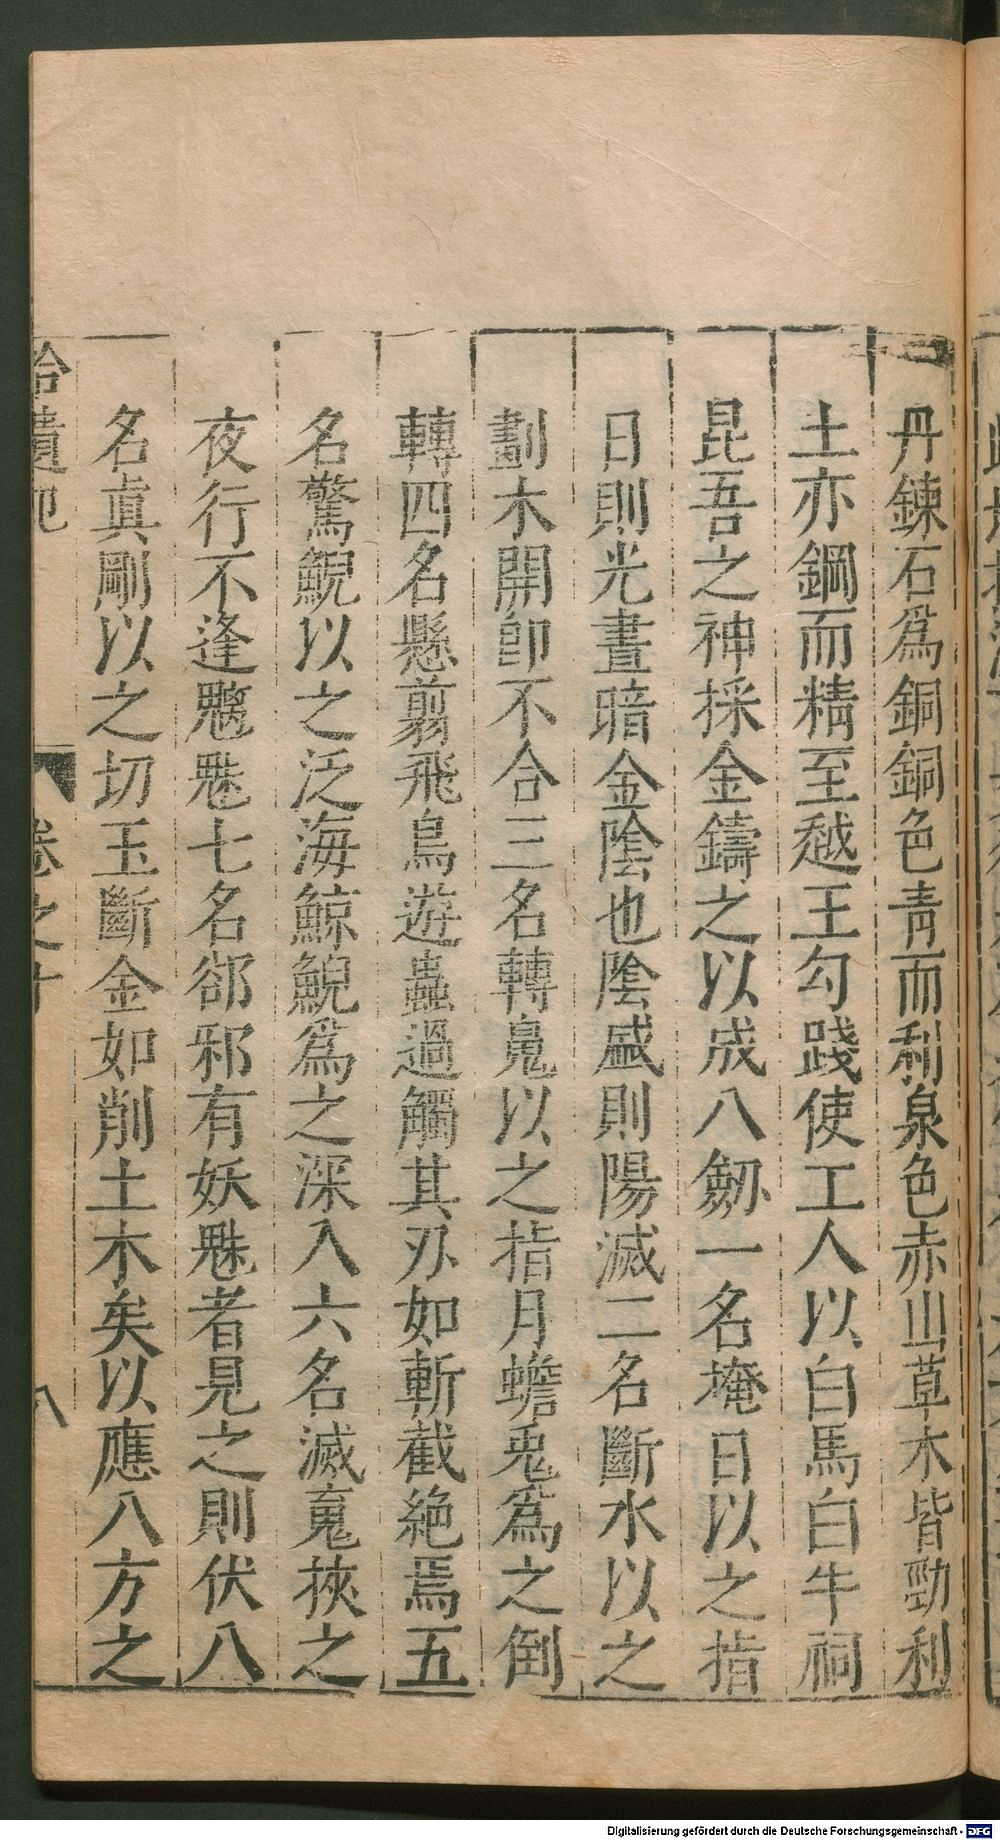 丹鍊石爲銅銅色青而利泉色赤山草木皆勁利
土亦鋼而精至越王勾踐使工人以白馬白牛祠
昆吾之神採金鑄之以成八劒一名掩日以之指
日則光晝暗金陰也陰盛則陽滅二名斷水以之
劃木開卽不合三名轉䰟以之指月蟾兎爲之倒
轉四名懸翦飛鳥遊蟲過觸其刃如斬截絶焉五
名驚鯢以之泛海鯨鯢爲之深入六名滅䰟挾之
夜行不逢魑魅七名郤邪有妖魅者見之則伏八
名眞剛以之切玉斷金如削土木矣以應八方之
拾遺記 卷之十 八
Digitalisierung gefördert durch die Deutsche Forschungsgemeinschaft - DFG